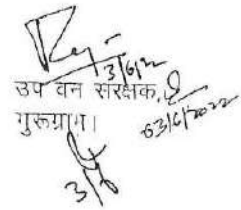 3/6/22
उप वन संरक्षक,
गुरूग्राम।
03/6/2022
3/6